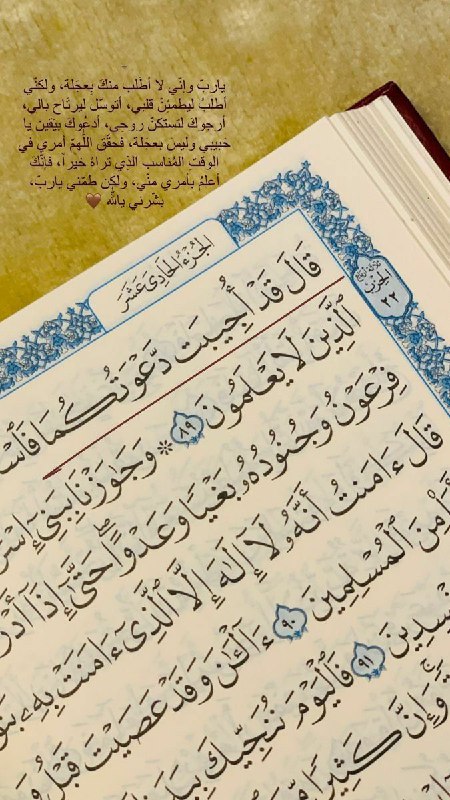 ياربّ وإنّي لا أطلب منكَ بعجَلة، ولكنّي
أطلبُ ليطمئنّ قلبي، أتوسّل ليرتاح بالي،
أرجوكَ لتستكنّ روحي، أدعُوك بيقين يا
حَبيبي وليس بعجَلة، فحقّق اللّهمّ أمري في
الوقتِ المُناسب الذي تراهُ خيراً، فإنّك
أعلمُ بأمري منّي، ولكن طمّني ياربّ،
بشّرني يالله 🤎
الجُزءُ الحَادِى عَشَرَ
الحِزْبُ ٢٢
قَالَ قَدْ أُجِيبَت دَّعْوَتُكُمَا
ٱلَّذِينَ لَا يَعْلَمُونَ ٨٩ وَجَٰوَزْنَا بِبَنِىٓ
فِرْعَوْنُ وَجُنُودُهُۥ بَغْيًا وَعَدْوًا حَتَّىٰٓ إِذَآ
قَالَ ءَامَنتُ أَنَّهُۥ لَآ إِلَٰهَ إِلَّا ٱلَّذِىٓ ءَامَنَتْ بِهِۦ
مِنَ ٱلْمُسْلِمِينَ ٩٠ ءَآلْـَٰٔنَ وَقَدْ عَصَيْتَ قَبْلُ
٩١ فَٱلْيَوْمَ نُنَجِّيكَ
وَإِنَّ كَثِيرًا